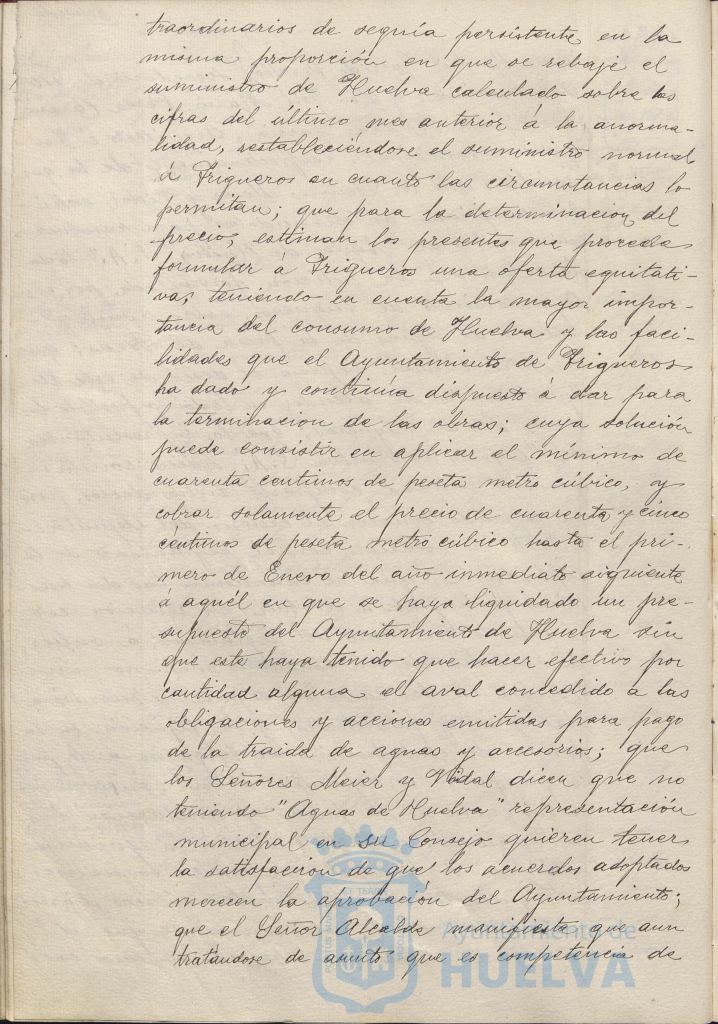 traordinarios de sequía persistente, en la
misma proporción en que se rebaje el
suministro de Huelva calculado sobre las
cifras del último mes anterior á la anorma-
lidad, restableciéndose el suministro normal
á Trigueros en cuanto las circunstancias lo
permitan; que para la determinacion del
precio, estiman los presentes que procede
formular á Trigueros una oferta equitati-
va, teniendo en cuenta la mayor impor-
tancia del consumo de Huelva y las faci-
lidades que el Ayuntamiento de Trigueros
ha dado y continúa dispuesto á dar para
la terminacion de las obras; cuya solución
puede consistir en aplicar el mínimo de
cuarenta centimos de peseta metro cúbico, y
cobrar solamente el precio de cuarenta y cinco
céntimos de peseta metro cúbico hasta el pri-
mero de Enero del año inmediato siguiente
á aquél en que se haya liquidado un pre-
supuesto del Ayuntamiento de Huelva sin
que este haya tenido que hacer efectivo por
cantidad alguna el aval concedido a las
obligaciones y acciones emitidas para pago
de la traida de aguas y accesorios; que
los Señores Meier y Vidal dicen que no
teniendo "Aguas de Huelva" representación
municipal en su Consejo quieren tener
la satisfacción de que los acuerdos adoptados
merecen la aprobación del Ayuntamiento;
que el Señor Alcalde manifiesta que aun
tratándose de asunto que es competencia de
Ayuntamiento de
HUELVA